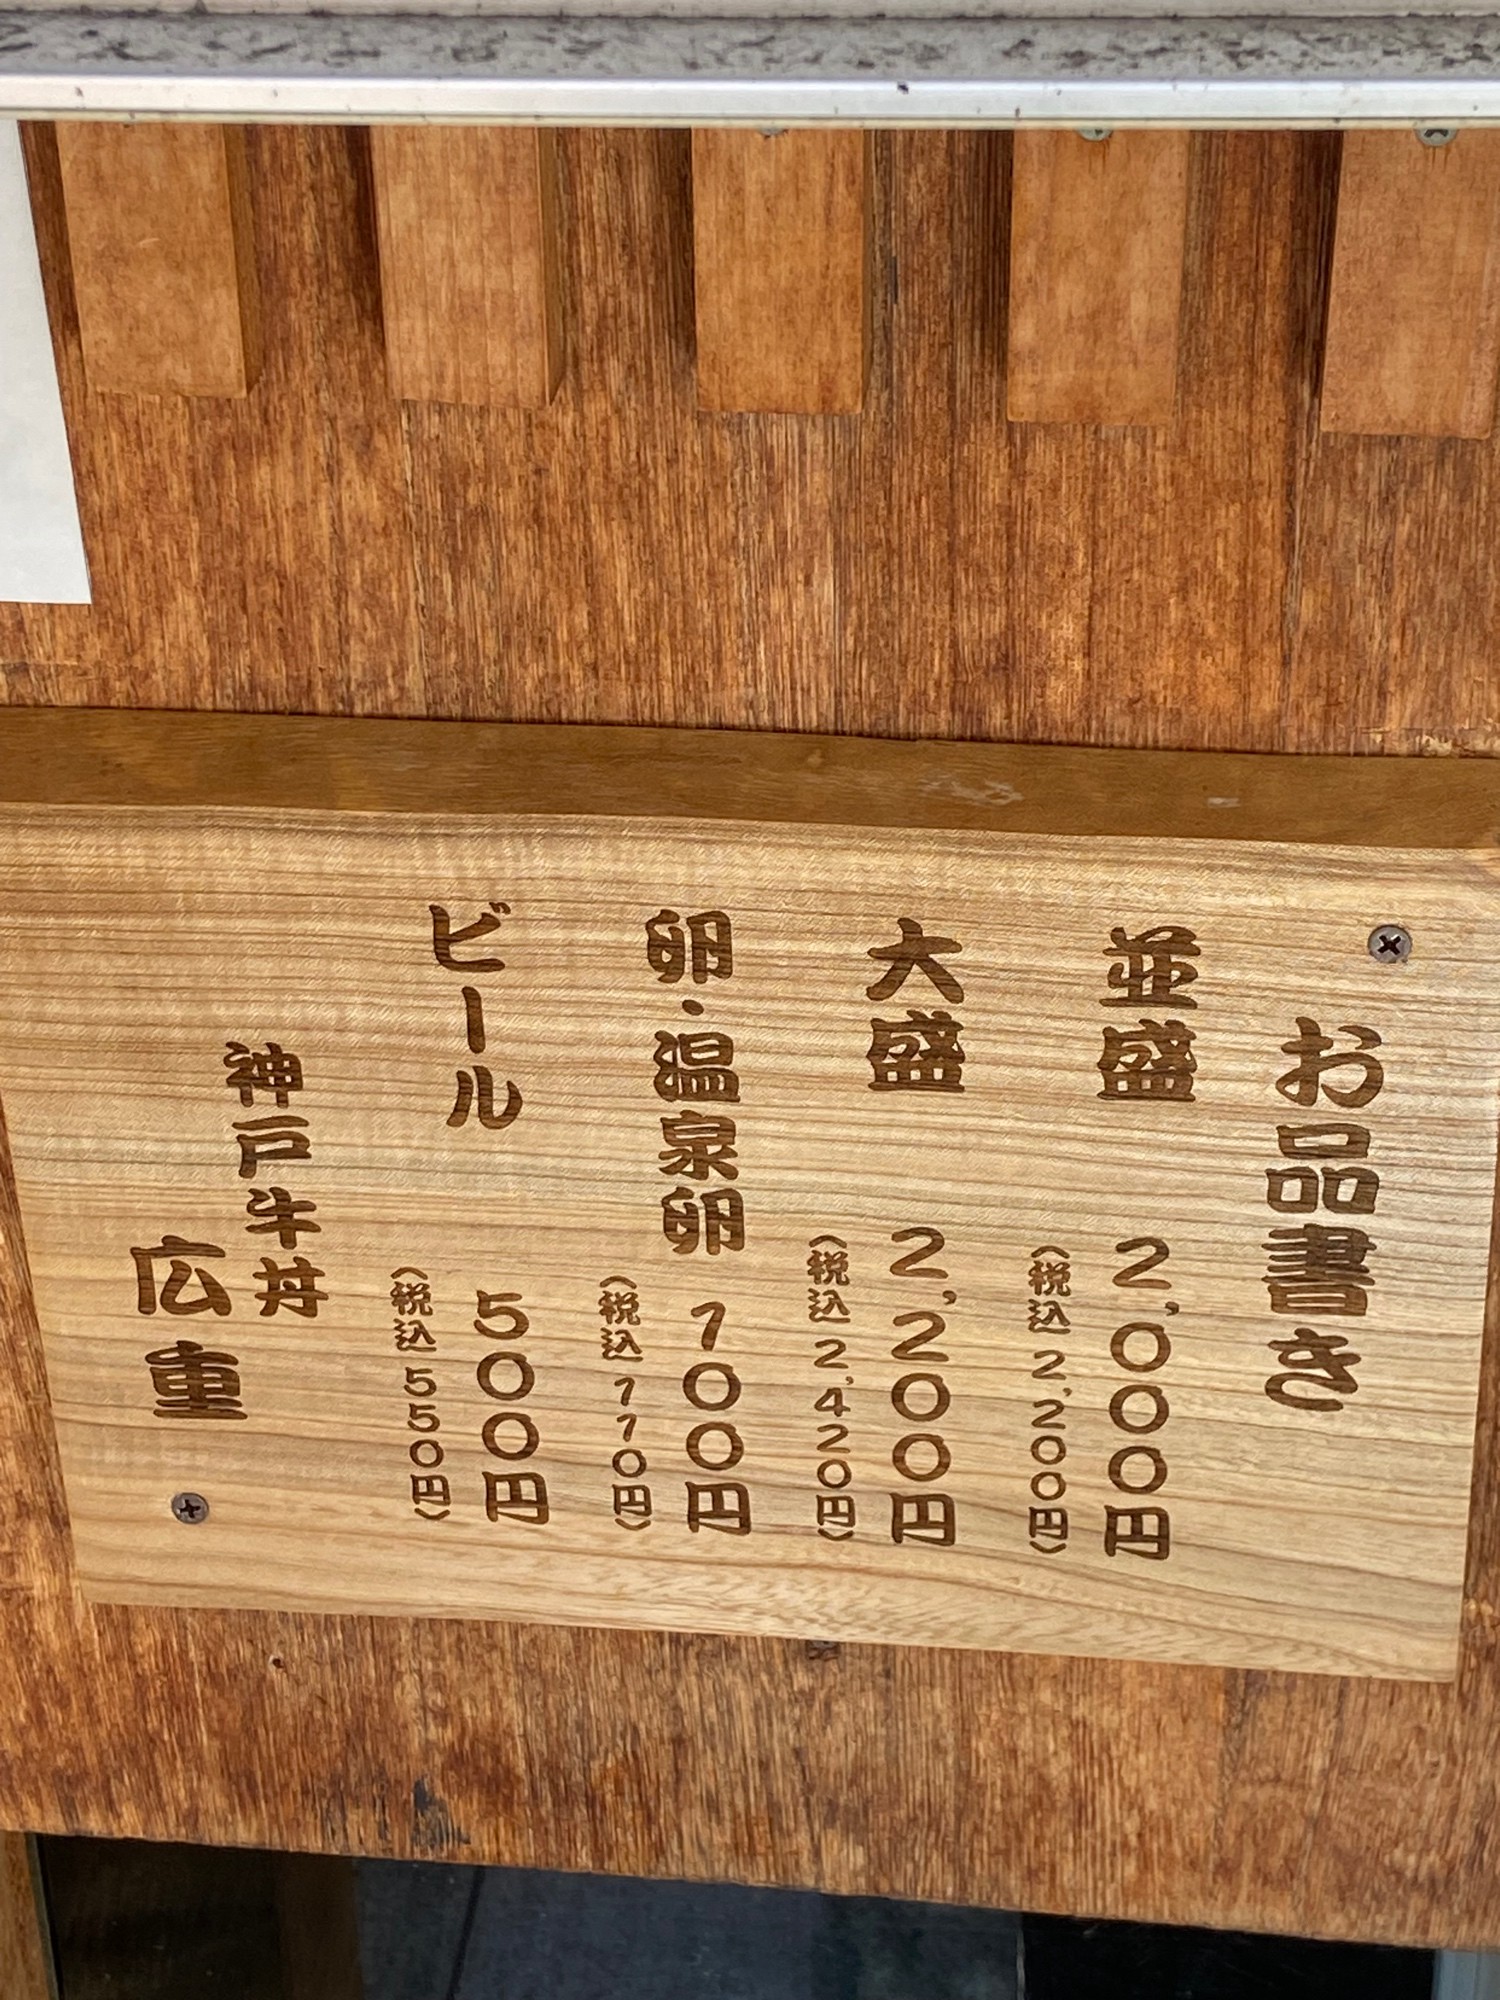 お品書き
並盛 2,000円
(税込 2,200円)
大盛 2,200円
(税込 2,420円)
卵・温泉卵 100円
(税込 110円)
ビール 500円
(税込 550円)
神戸牛丼
広重